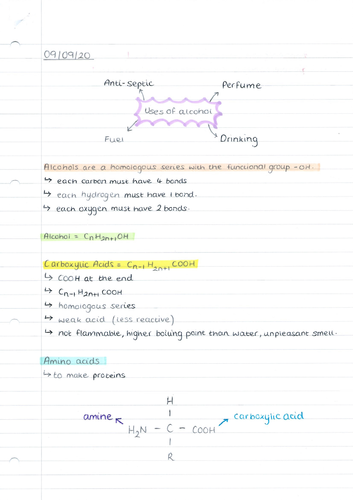 09/09/20
Anti-septic
Perfume
Uses of alcohol
Fuel
Drinking
Alcohols are a homologous series with the functional group -OH.
↳ each carbon must have 4 bonds
↳ each hydrogen must have 1 bond.
↳ each oxygen must have 2 bonds.
Alcohol = CₙH₂ₙ₊₁OH
Carboxylic Acids = Cₙ₋₁ H₂ₙ₋₁ COOH
↳ COOH at the end
↳ Cₙ₋₁ H₂ₙ₊₁ COOH
↳ homologous series
↳ weak acid (less reactive)
↳ not flammable, higher boiling point than water, unpleasant smell.
Amino acids
↳ to make proteins
H
amine
carboxylic acid
H₂N - C - COOH
R